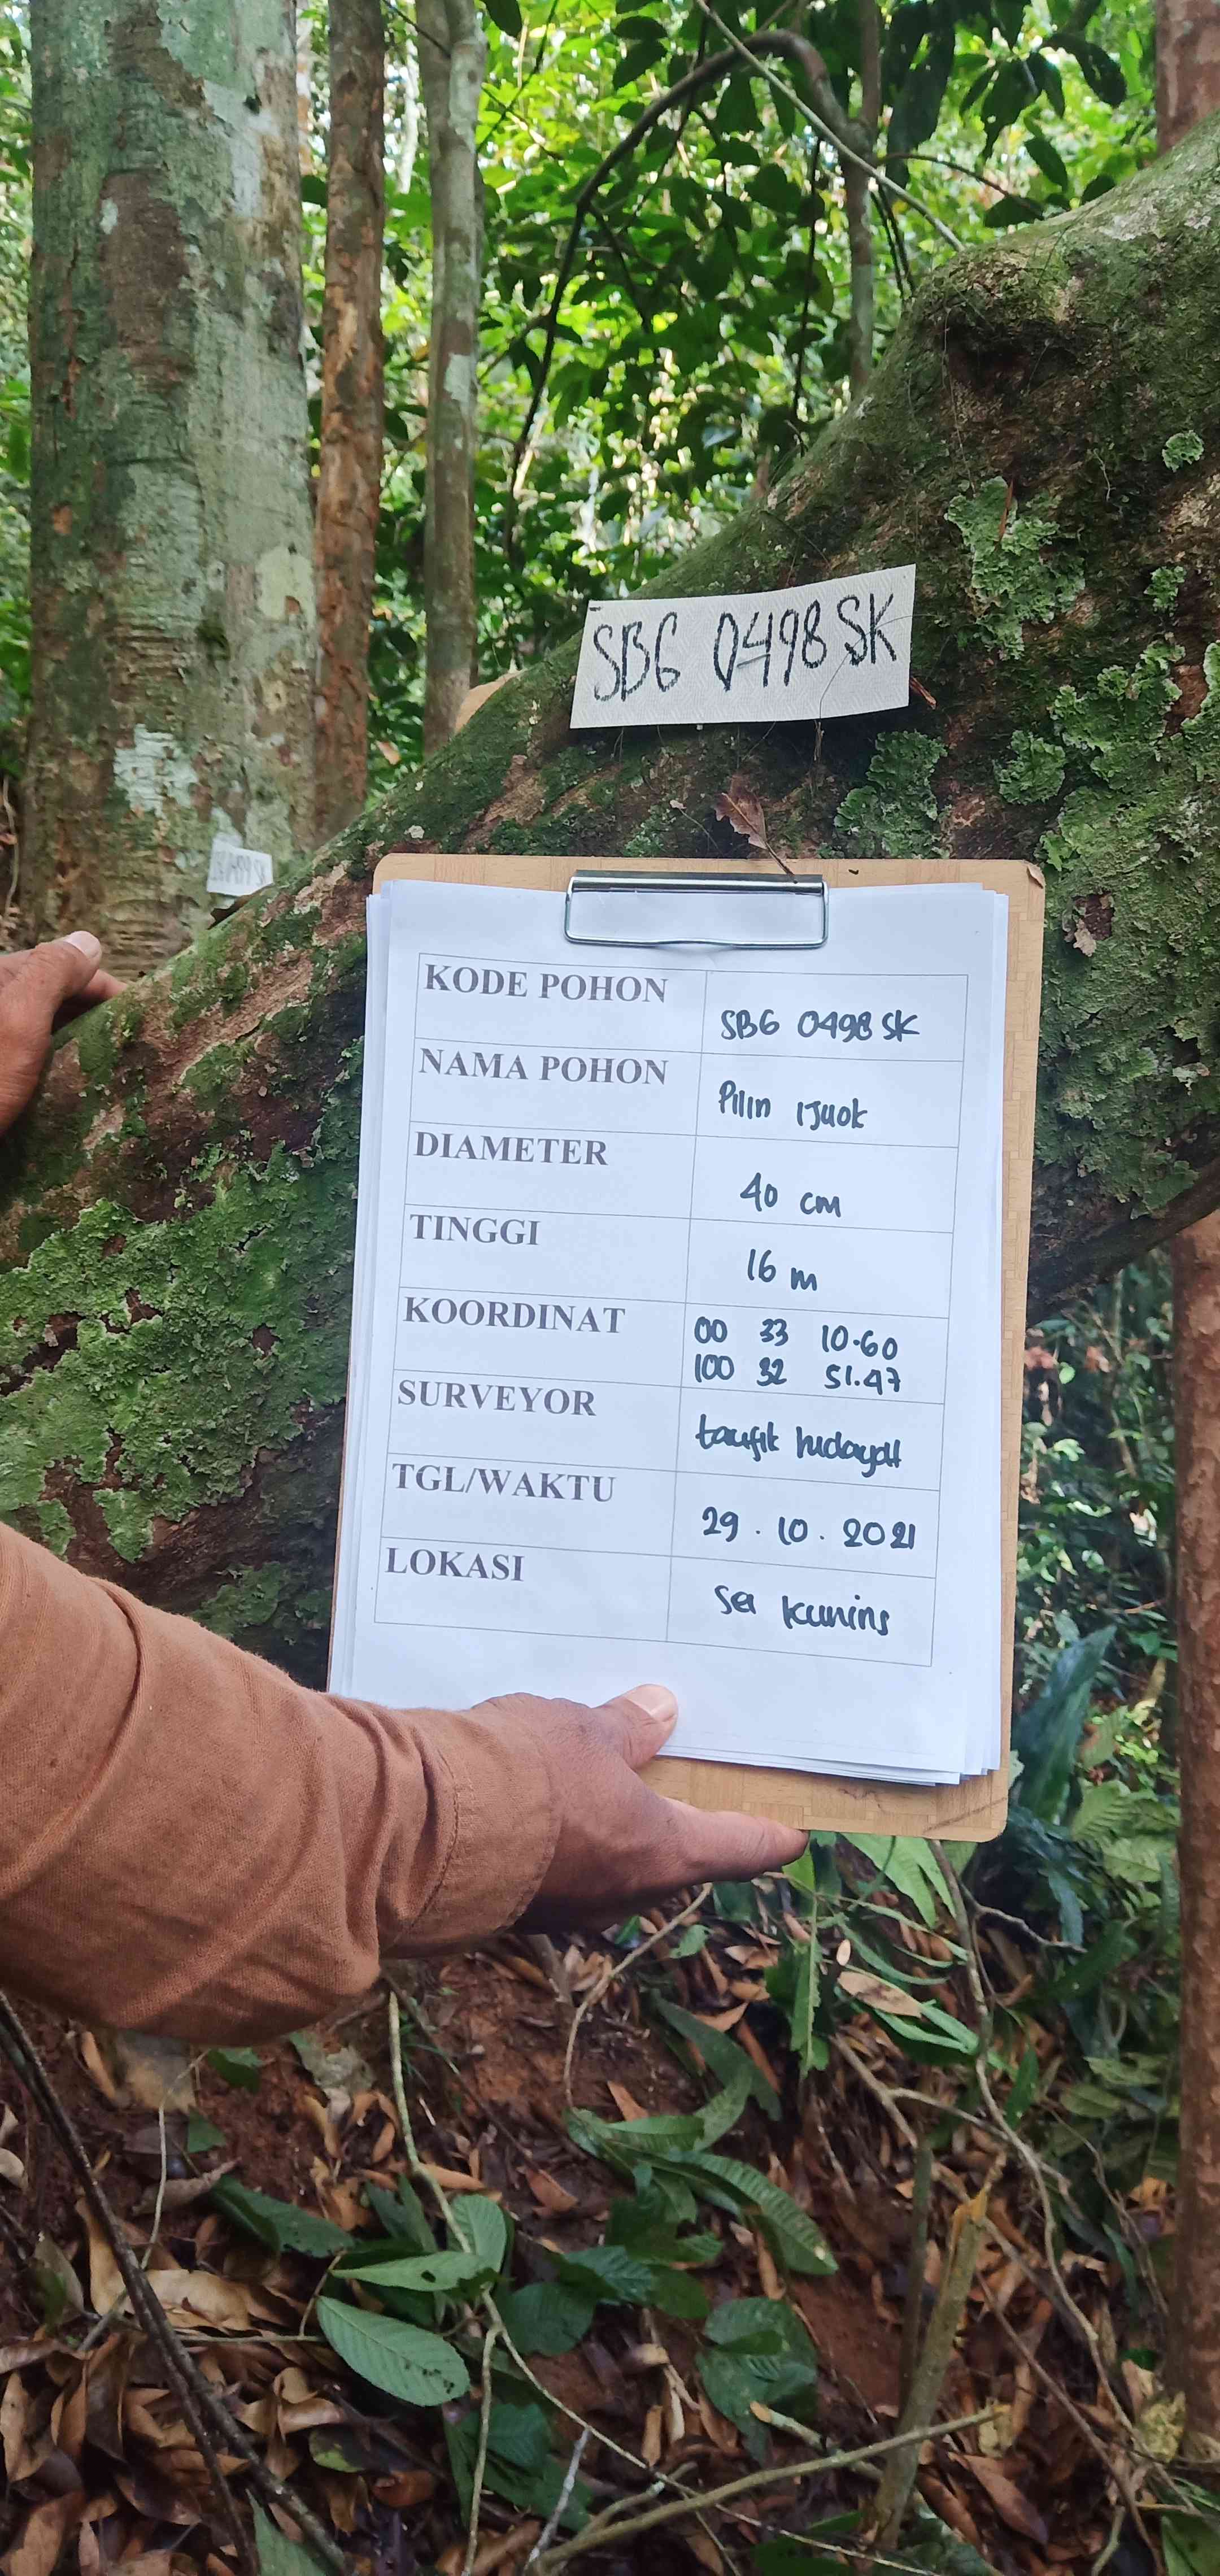 SBG 0498 SK
KODE POHON
SBG 0498 SK
NAMA POHON
Pilin ijuok
DIAMETER
40 cm
TINGGI
16 m
KOORDINAT
00 33 10.60
100 32 51.47
SURVEYOR
taufik hidayat
TGL/WAKTU
29.10.2021
LOKASI
Sei Kuning